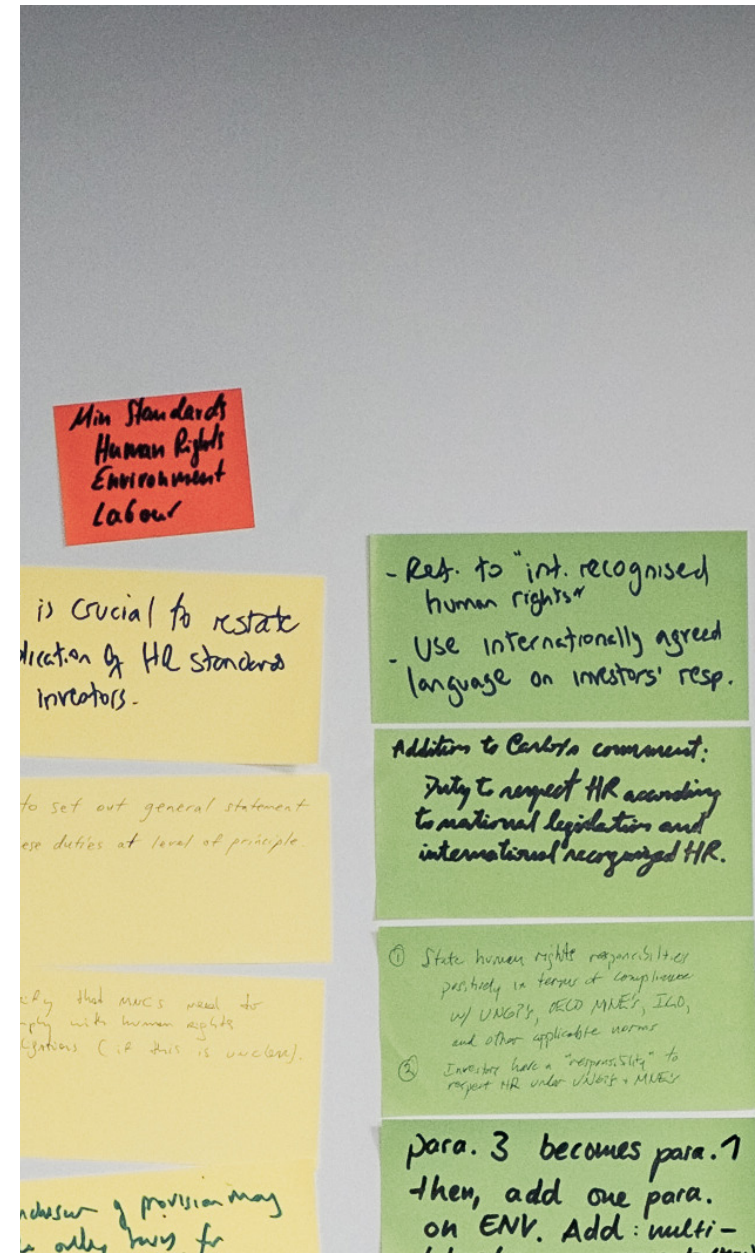 Min Standards
Human Rights
Environment
Labour
is crucial to restate
of HR standards
investors.
to set out general statement
duties at level of principle.
that MNCs need to
with human rights
(if this is unclear).
of provision may
- Ref. to "int. recognised
human rights"
- Use internationally agreed
language on investors' resp.
Addition to Carlo's comment:
Duty to respect HR according
to national legislation and
international recognized HR.
① State human rights responsibilities
positively in terms of compliance
w/ UNGP's, OECD MNE's, ILO,
and other applicable norms
② Investors have a "responsibility" to
respect HR under UNGPs + MNE's
para. 3 becomes para. 1
then, add one para.
on ENV. Add: multi-